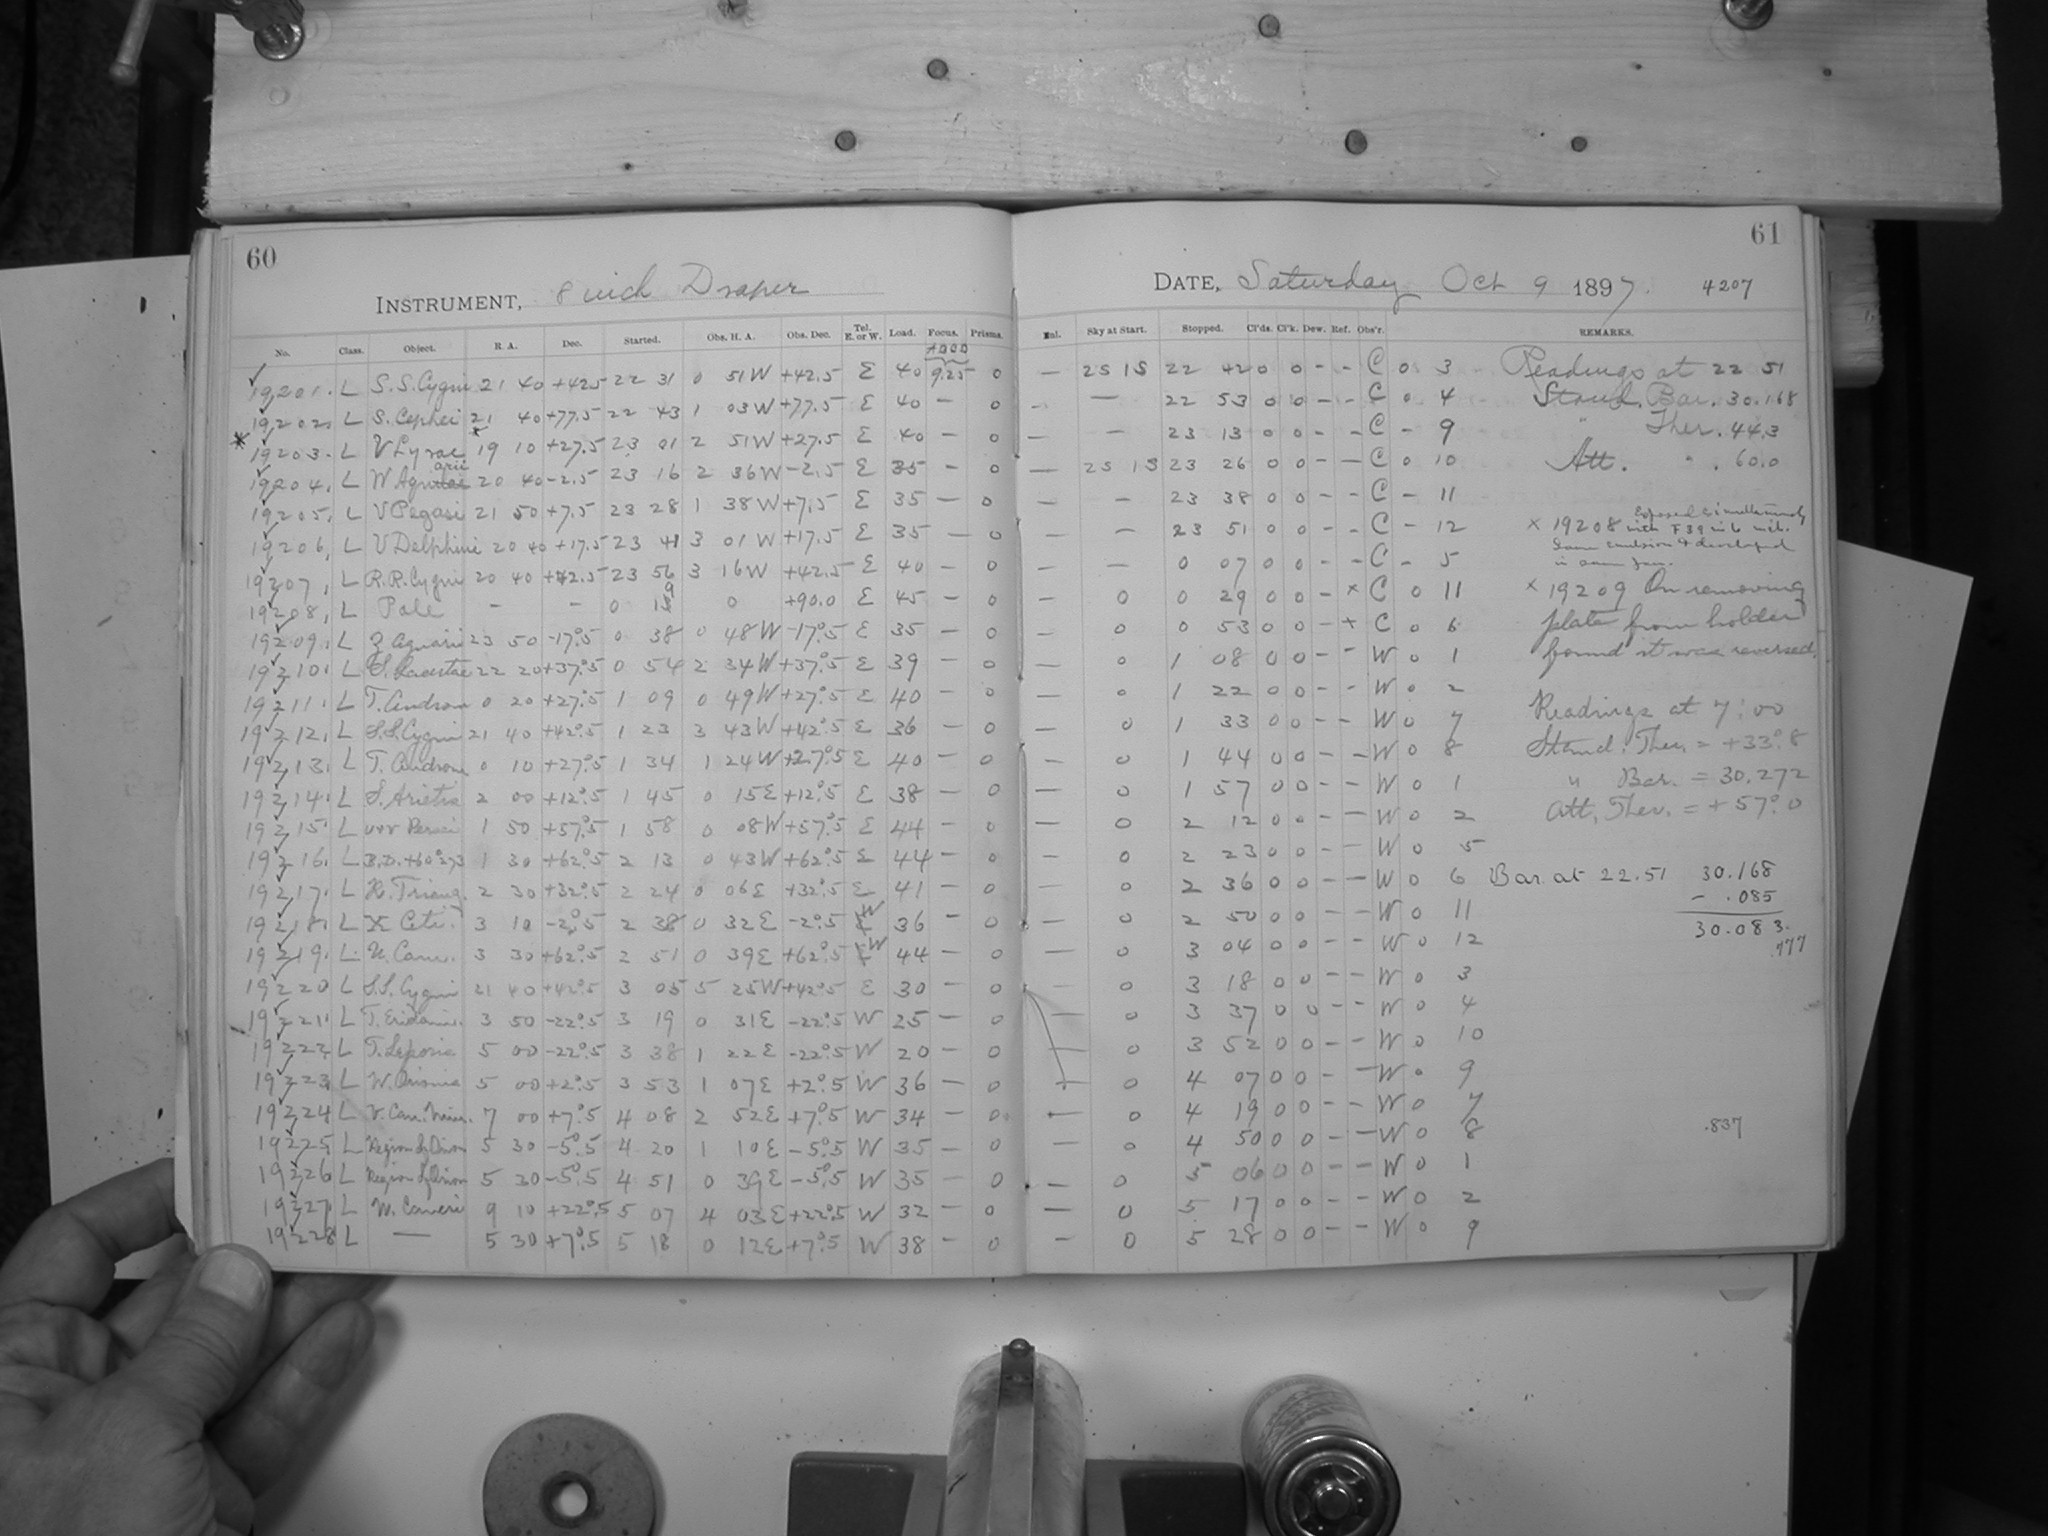 60
INSTRUMENT, 8 inch Draper
No. Class. Object. R. A. Dec. Started. Obs. H. A. Obs. Dec. Tel. E. or W. Load. Focus. Prisms.
19201. L S.S. Cygni 21 40 +42.5 22 31 0 51 W +42.5 E 40 9.25 0
19202. L S. Cephei 21 40 +77.5 22 43 1 03 W +77.5 E 40 — 0
* 19203. L V Lyrae 19 10 +27.5 23 01 2 51 W +27.5 E 40 — 0
19204. L W Aquarii 20 40 -2.5 23 16 2 36 W -2.5 E 35 — 0
19205. L V Pegasi 21 50 +7.5 23 28 1 38 W +7.5 E 35 — 0
19206, L V Delphini 20 40 +17.5 23 41 3 01 W +17.5 E 35 — 0
19207, L R.R. Cygni 20 40 +42.5 23 56 3 16 W +42.5 E 40 — 0
19208, L Pole — — 0 0 +90.0 E 45 — 0
19209. L Z Aquarii 23 50 -17°.5 0 38 0 48 W -17°.5 E 35 — 0
19210. L S. Lacertae 22 20 +37°.5 0 54 2 34 W +37°.5 E 39 — 0
19211. L T. Androm 0 20 +27°.5 1 09 0 49 W +27°.5 E 40 — 0
19212. L S.S. Cygni 21 40 +42°.5 1 23 3 43 W +42°.5 E 36 — 0
19213. L T. Androm 0 10 +27°.5 1 34 1 24 W +27°.5 E 40 — 0
19214. L S. Arietis 2 00 +12°.5 1 45 0 15 E +12°.5 E 38 — 0
19215. L Persei 1 50 +57°.5 1 58 0 08 W +57°.5 E 44 — 0
19216. L B.D. +60°273 1 30 +62°.5 2 13 0 43 W +62°.5 E 44 — 0
19217. L R. Triang. 2 30 +32°.5 2 24 0 06 E +32°.5 E 41 — 0
19218. L X Ceti. 3 10 -2°.5 2 38 0 32 E -2°.5 W 36 — 0
19219. L U. Cam. 3 30 +62°.5 2 51 0 39 E +62°.5 W 44 — 0
19220 L S.S. Cygni 21 40 +42°.5 3 05 5 25 W +42°.5 E 30 — 0
19221. L T. Eridani. 3 50 -22°.5 3 19 0 31 E -22°.5 W 25 — 0
19222. L T. Leporis 5 00 -22°.5 3 38 1 22 E -22°.5 W 20 — 0
19223. L W. Orionis 5 00 +2°.5 3 53 1 07 E +2°.5 W 36 — 0
19224 L V. Can. Min. 7 00 +7°.5 4 08 2 52 E +7°.5 W 34 — 0
19225. L Region of Orion 5 30 -5°.5 4 20 1 10 E -5°.5 W 35 — 0
19226 L Region of Orion 5 30 -5°.5 4 51 0 39 E -5°.5 W 35 — 0
19227. L W. Cancri 9 10 +22°.5 5 07 4 03 E +22°.5 W 32 — 0
19228 L — 5 30 +7°.5 5 18 0 12 E +7°.5 W 38 — 0
61
DATE, Saturday Oct 9 1897. 4207
Enl. Sky at Start. Stopped. Cl'ds. Cl'k. Dew. Ref. Obs'r. REMARKS.
— 2S 1S 22 42 0 0 - - C 0 3
— — 22 53 0 0 - - C 0 4
— — 23 13 0 0 - - C - 9
— 2S 1S 23 26 0 0 - - C 0 10
— — 23 38 0 0 - - C - 11
— — 23 51 0 0 - - C - 12
— — 0 07 0 0 - - C - 5
— 0 0 29 0 0 - x C 0 11
— 0 0 53 0 0 - + C 0 6
— 0 1 08 0 0 - - W 0 1
— 0 1 22 0 0 - - W 0 2
— 0 1 33 0 0 - - W 0 7
— 0 1 44 0 0 - - W 0 8
— 0 1 57 0 0 - - W 0 1
— 0 2 12 0 0 - - W 0 2
— 0 2 23 0 0 - - W 0 5
— 0 2 36 0 0 - - W 0 6
— 0 2 50 0 0 - - W 0 11
— 0 3 04 0 0 - - W 0 12
— 0 3 18 0 0 - - W 0 3
— 0 3 37 0 0 - - W 0 4
— 0 3 52 0 0 - - W 0 10
— 0 4 07 0 0 - - W 0 9
— 0 4 19 0 0 - - W 0 7
— 0 4 50 0 0 - - W 0 8
— 0 5 06 0 0 - - W 0 1
— 0 5 17 0 0 - - W 0 2
— 0 5 28 0 0 - - W 0 9
Readings at 22 51
Stand. Bar. 30.168
" Ther. 44.3
Att. " . 60.0
x 19208 Exposed simultaneously
with F 39 in 6 inch.
Same emulsion & developed
in same
x 19209 On removing
plate from holder
found it was reversed.
Readings at 7:00
Stand. Ther. = +33°.8
" Bar. = 30.272
Att. Ther. = +57°.0
Bar. at 22.51 30.168
- .085
30.083.
.777
.837